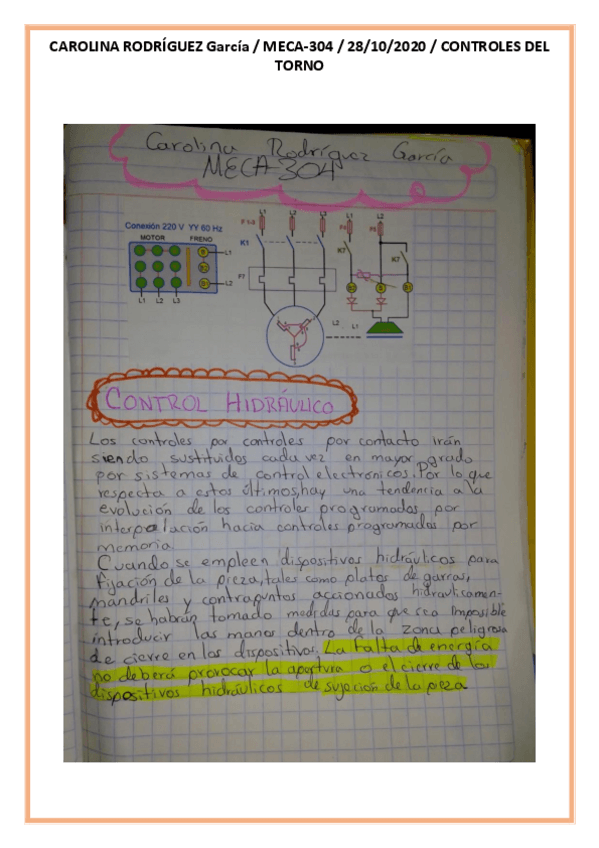 CAROLINA RODRÍGUEZ García / MECA-304 / 28/10/2020 / CONTROLES DEL
TORNO
Carolina Rodríguez García
MECA 304
Conexión 220 V YY 60 Hz
MOTOR FRENO
L1
L2
L1 L2 L3
L1 L2 L3 L1 L2
F 1-3
K1
K7
K7
F7
L2 L1
CONTROL HIDRÁULICO
Los controles por controles por contacto irán
siendo sustituidos cada vez en mayor grado
por sistemas de control electrónicos. Por lo que
respecta a estos últimos, hay una tendencia a la
evolución de los controles programados por
interpolación hacia controles programados por
memoria.
Cuando se empleen dispositivos hidráulicos para
fijación de la pieza, tales como platos de garras,
mandriles y contrapuntos accionados hidraulicamen-
te, se habrán tomado medidas para que sea imposible
introducir las manos dentro de la zona peligrosa
de cierre en las dispositivos. La falta de energía
no deberá provocar la apertura o el cierre de los
dispositivos hidráulicos de sujeción de la pieza